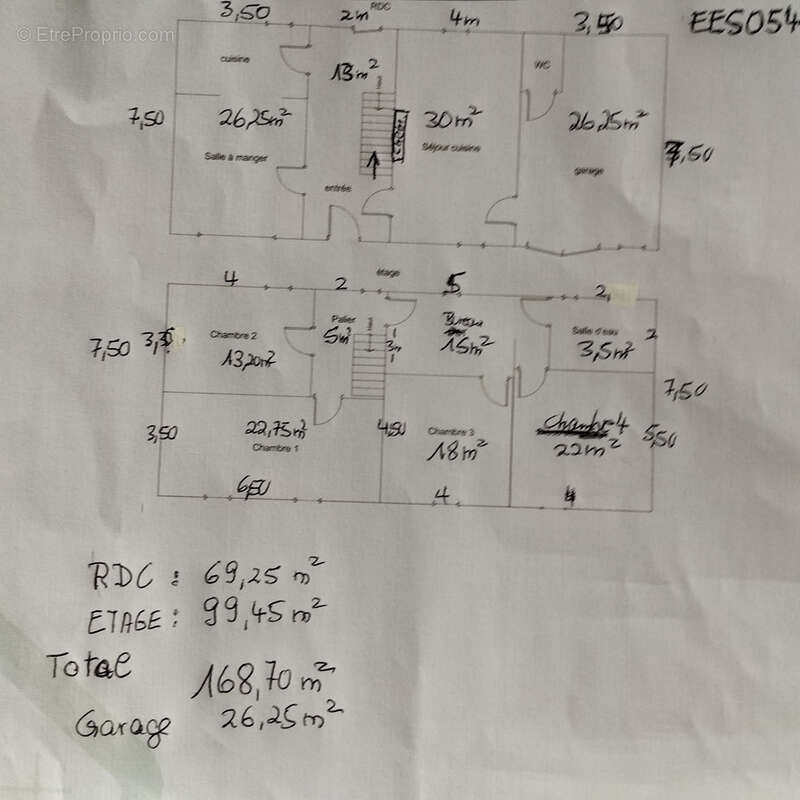 © EtreProprio.com
RDC
3,50 2m 4m 3,50 EES054
cuisine 13m² WC
7,50 26,25m² 30m² 26,25m²
Salle à manger Séjour cuisine 7,50
garage
entrée
étage
4 2 5 2,
Palier Bureau Salle d'eau
7,50 3,30 Chambre 2 5m² 3m 15m² 3,5m² 2
13,20m²
7,50
3,50 22,75m² 4,50 Chambre 3 Chambre 4 5,50
Chambre 1 18m² 22m²
6,50 4 4
RDC : 69,25 m²
ETAGE : 99,45 m²
Total 168,70 m²
Garage 26,25 m²